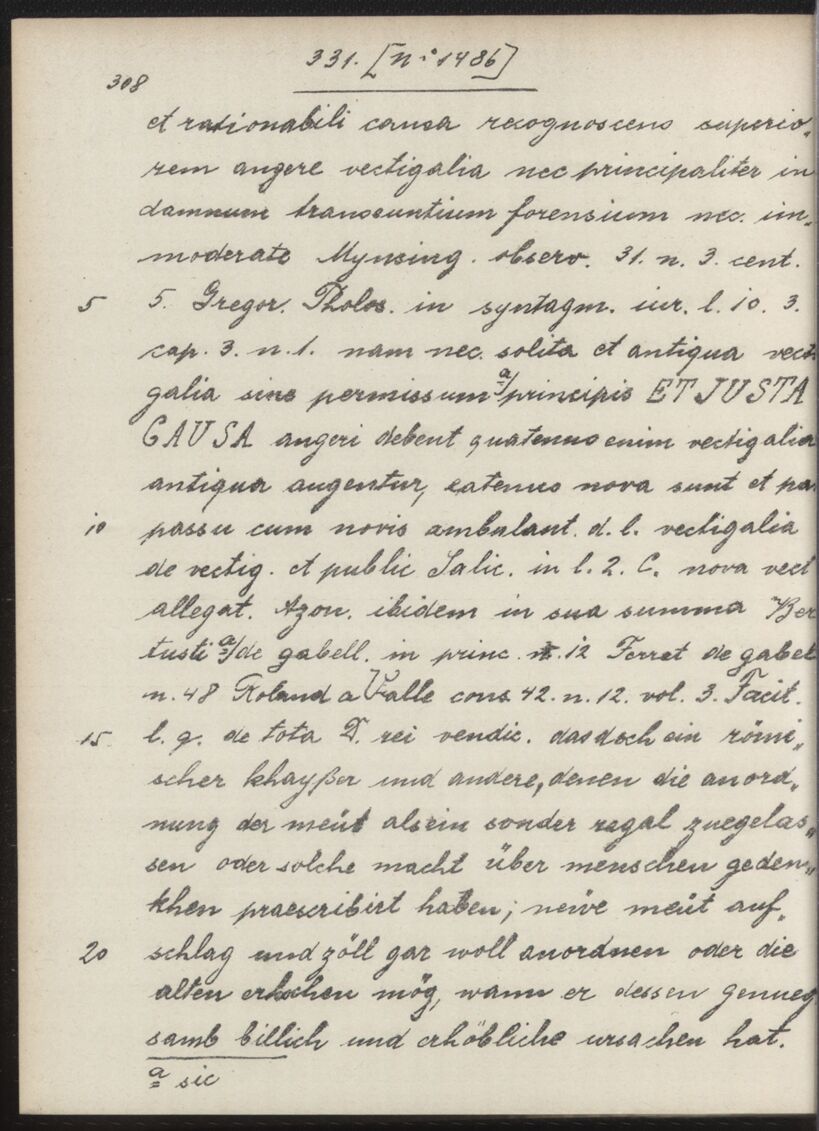 331. [N° 1486]
308
et rationabili causa recognoscens superio„
rem angere vectigalia nec principaliter in
damnum transeuntium forensium nec. im„
moderate Mynsing. observ. 31. n. 3. cent.
5 5. Gregor. Tholos. in syntagm. iur. l. io. 3.
cap. 3. n. 1. nam nec. solita et antiqua vecti
galia sine permissum a/ principis ET JUSTA
CAUSA angeri debent quatenus enim vectigalia
antiqua augentur, eatenus nova sunt et pa
10 passu cum novis ambulant. d. l. vectigalia
de vectig. et public Salic. in l. 2. C. nova vect
allegat. Azon. ibidem in sua summa Ber
tusti a/ de gabell. in princ. n. 12 Ferret de gabel
n. 48 Roland a Valle cons. 42. n. 12. vol. 3. Facit.
15. l. q. de tota D. rei vendic. das dsch ein römi„
scher khayßer und andere, denen die anord„
nung der meüt als ein sonder regal zuegelas„
sen oder solche macht über menschen geden„
khen praescribirt haben; neüe meüt auf„
20 schlag und zöll gar woll anordnen oder die
alten erhöchen mög, wann er dessen genueg
samb billich und erhöbliche ursachen hat.
a sic